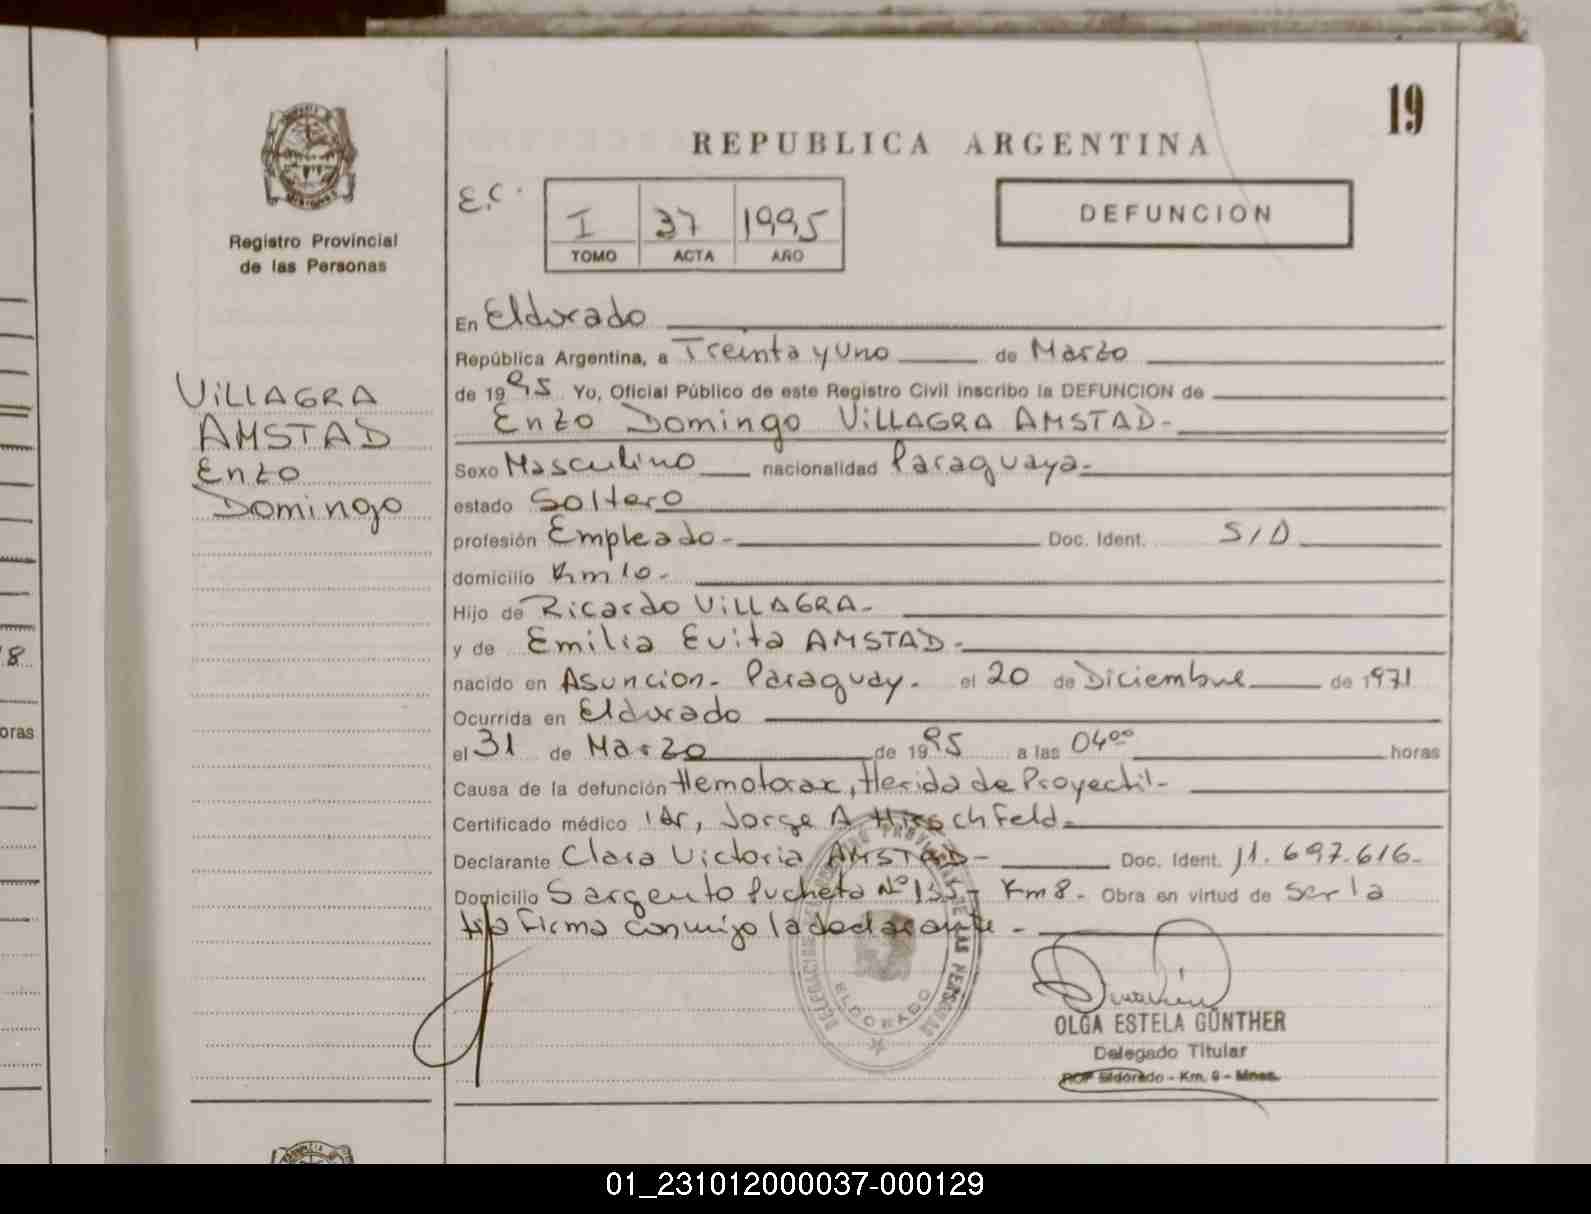 19
REPUBLICA ARGENTINA
E.C.
I 37 1995
TOMO ACTA AÑO
DEFUNCION
Registro Provincial
de las Personas
VILLAGRA
AMSTAD
Enzo
Domingo
En Eldorado
República Argentina, a Treinta y uno de Marzo
de 1995 Yo, Oficial Público de este Registro Civil inscribo la DEFUNCION de
Enzo Domingo VILLAGRA AMSTAD-
Sexo Masculino nacionalidad Paraguaya-
estado Soltero
profesión Empleado- Doc. Ident. S/D
domicilio Km 10-
Hijo de Ricardo VILLAGRA-
y de Emilia Evita AMSTAD-
nacido en Asuncion- Paraguay- el 20 de Diciembre de 1971
Ocurrida en Eldorado
el 31 de Marzo de 1995 a las 04⁰⁰ horas
Causa de la defunción Hemotorax, Herida de Proyectil-
Certificado médico Dr, Jorge A Hirschfeld-
Declarante Clara Victoria AMSTAD- Doc. Ident. 11.697.616-
Domicilio Sargento Pucheta Nº 135- Km 8- Obra en virtud de Ser la
tia Firma conmigo la declarante-
DELEGACION REGISTRO PROVINCIAL DE LAS PERSONAS
ELDORADO
OLGA ESTELA GÜNTHER
Delegado Titular
RCP Eldorado - Km. 9 - Mnes.
8
oras
01_231012000037-000129